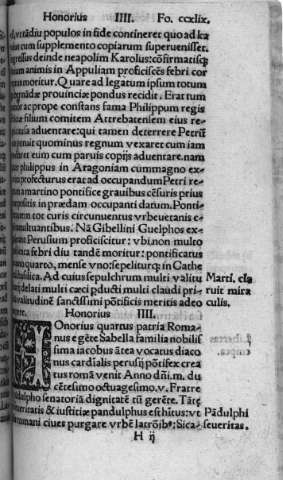 Honorius IIII. Fo. ccxlix.
populos in fide contineret quo ad
cum supplemento copiarum superuenisset.
deinde neapolim Karolus: cõfirmatisq;
animis in Appuliam proficiscẽs febri cor
moritur. Quare ad legatum ipsum totum
prouinciæ pondus recidit. Erat tum
prope constans fama Philippum regis
filium comitem Atrebatensem eius re-
aduentare: qui tamen deterrere Petrũ
quominus regnum vexaret cum iam
eum cum paruis copijs aduentare. nam
philippus in Aragoniam cum magno ex-
profecturus erat ad occupandum Petri re-
martino pontifice grauibus cẽsuris prius
in prædam occupanti datum. Ponti-
tot curis circunuentus vrbeuetanis
tumultuantibus. Nã Gibellini Guelphos ex-
Perusium proficiscitur: vbi non multo
febri diu tandẽ moritur: pontificatus
quarto, mense vno: sepelitur q; in Cathe
Ad cuius sepulchrum multi valitu
delati multi cæci pducti multi claudi pri-
valitudinẽ sanctissimi põtificis meritis adeo
Martí. cla
ruit mira
culis.
Honorius IIII.
HOnorius quartus patria Roma-
nus e gẽte Sabella familia nobilis
sima iacobus ãtea vocatus diaco
nus cardĩalis perusij põtifex crea
tus romã venit Anno dñi. m. du
cẽtesimo octuagesimo. v. Fratre
senatoriã dignitatẽ tũ gerẽte. Tãtę
& iustitiæ pandulphus est hitus: vt
romani ciues purgare vrbẽ latrõib9: Sica-
Pãdulphi
seueritas.
H ij